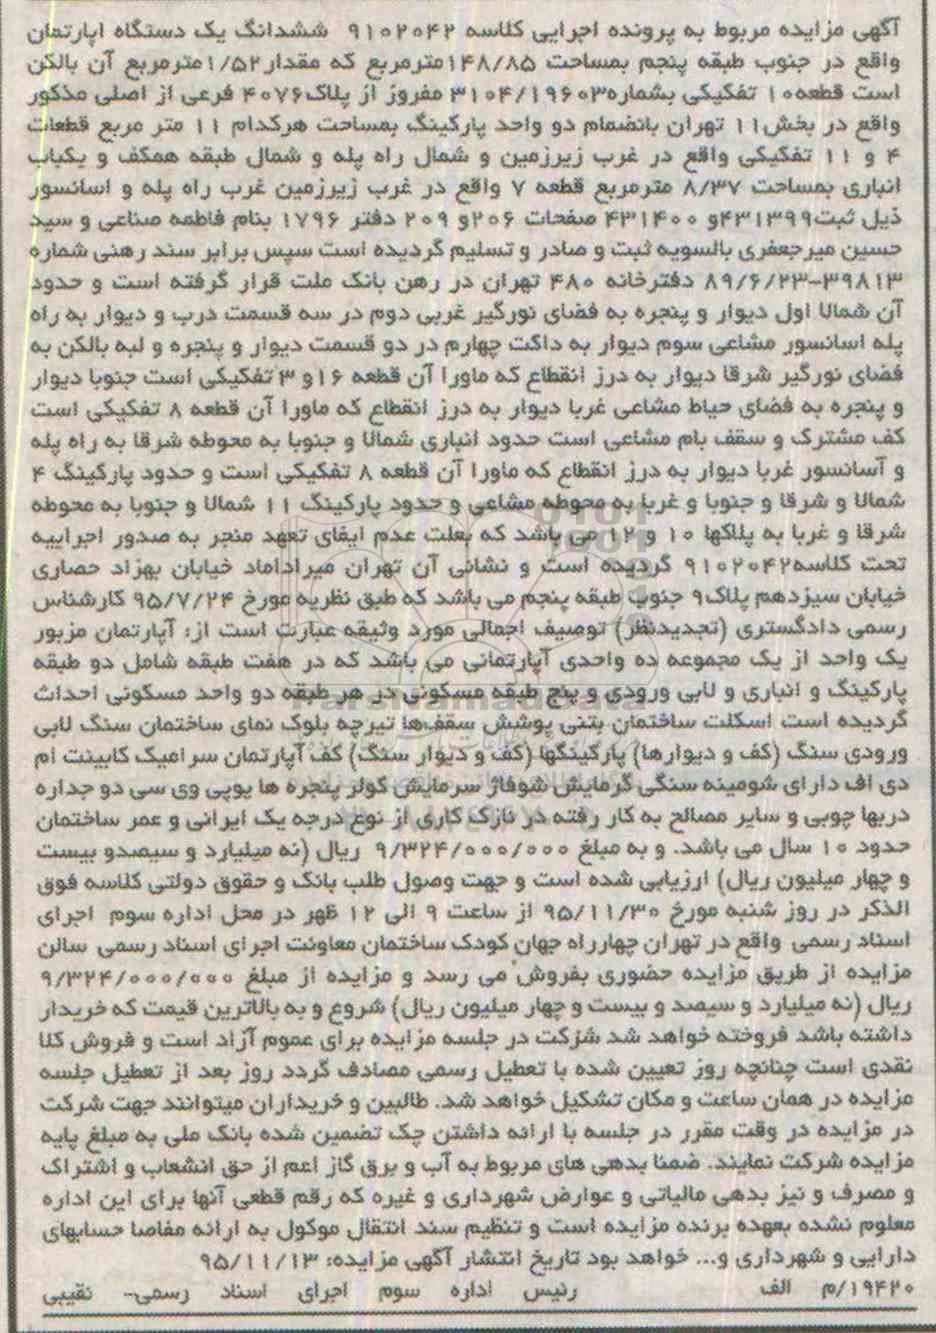 آگهی مزایده مربوط به پرونده اجرایی کلاسه ۹۱۰۲۰۴۲ ششدانگ یک دستگاه اپارتمان
واقع در جنوب طبقه پنجم بمساحت ۱۴۸/۸۵مترمربع که مقدار۱/۵۲مترمربع آن بالکن
است قطعه۱۰ تفکیکی بشماره۳۱۰۴/۱۹۶۰۳ مفروز از پلاک۴۰۷۶ فرعی از اصلی مذکور
واقع در بخش۱۱ تهران بانضمام دو واحد پارکینگ بمساحت هرکدام ۱۱ متر مربع قطعات
۴ و ۱۱ تفکیکی واقع در غرب زیرزمین و شمال راه پله و شمال طبقه همکف و یکباب
انباری بمساحت ۸/۳۷ مترمربع قطعه ۷ واقع در غرب زیرزمین غرب راه پله و اسانسور
ذیل ثبت۴۳۱۳۹۹و ۴۳۱۴۰۰ صفحات ۲۰۶و ۲۰۹ دفتر ۱۷۹۶ بنام فاطمه صناعی و سید
حسین میرجعفری بالسویه ثبت و صادر و تسلیم گردیده است سپس برابر سند رهنی شماره
۳۹۸۱۳-۸۹/۶/۲۳ دفترخانه ۴۸۰ تهران در رهن بانک ملت قرار گرفته است و حدود
آن شمالا اول دیوار و پنجره به فضای نورگیر غربی دوم در سه قسمت درب و دیوار به راه
پله اسانسور مشاعی سوم دیوار به داکت چهارم در دو قسمت دیوار و پنجره و لبه بالکن به
فضای نورگیر شرقا دیوار به درز انقطاع که ماورا آن قطعه ۱۶و ۳ تفکیکی است جنوبا دیوار
و پنجره به فضای حیاط مشاعی غربا دیوار به درز انقطاع که ماورا آن قطعه ۸ تفکیکی است
کف مشترک و سقف بام مشاعی است حدود انباری شمالا و جنوبا به محوطه شرقا به راه پله
و آسانسور غربا دیوار به درز انقطاع که ماورا آن قطعه ۸ تفکیکی است و حدود پارکینگ ۴
شمالا و شرقا و جنوبا و غربا به محوطه مشاعی و حدود پارکینگ ۱۱ شمالا و جنوبا به محوطه
شرقا و غربا به پلاکها ۱۰ و ۱۲ می باشد که بعلت عدم ایفای تعهد منجر به صدور اجراییه
تحت کلاسه۹۱۰۲۰۴۲ گردیده است و نشانی آن تهران میرداماد خیابان بهزاد حصاری
خیابان سیزدهم پلاک۹ جنوب طبقه پنجم می باشد که طبق نظریه مورخ ۹۵/۷/۲۴ کارشناس
رسمی دادگستری (تجدیدنظر) توصیف اجمالی مورد وثیقه عبارت است از: آپارتمان مزبور
یک واحد از یک مجموعه ده واحدی آپارتمانی می باشد که در هفت طبقه شامل دو طبقه
پارکینگ و انباری و لابی ورودی و پنج طبقه مسکونی در هر طبقه دو واحد مسکونی احداث
گردیده است اسکلت ساختمان بتنی پوشش سقف‌ها تیرچه بلوک نمای ساختمان سنگ لابی
ورودی سنگ (کف و دیوارها) پارکینگها (کف و دیوار سنگ) کف آپارتمان سرامیک کابینت ام
دی اف دارای شومینه سنگی گرمایش شوفاژ سرمایش کولر پنجره ها یوپی وی سی دو جداره
دربها چوبی و سایر مصالح به کار رفته در نازک کاری از نوع درجه یک ایرانی و عمر ساختمان
حدود ۱۰ سال می باشد. و به مبلغ ۹/۳۲۴/۰۰۰/۰۰۰ ریال (نه میلیارد و سیصدو بیست
و چهار میلیون ریال) ارزیابی شده است و جهت وصول طلب بانک و حقوق دولتی کلاسه فوق
الذکر در روز شنبه مورخ ۹۵/۱۱/۳۰ از ساعت ۹ الی ۱۲ ظهر در محل اداره سوم اجرای
اسناد رسمی واقع در تهران چهارراه جهان کودک ساختمان معاونت اجرای اسناد رسمی سالن
مزایده از طریق مزایده حضوری بفروش می رسد و مزایده از مبلغ ۹/۳۲۴/۰۰۰/۰۰۰
ریال (نه میلیارد و سیصد و بیست و چهار میلیون ریال) شروع و به بالاترین قیمت که خریدار
داشته باشد فروخته خواهد شد شرکت در جلسه مزایده برای عموم آزاد است و فروش کلا
نقدی است چنانچه روز تعیین شده با تعطیل رسمی مصادف گردد روز بعد از تعطیل جلسه
مزایده در همان ساعت و مکان تشکیل خواهد شد. طالبین و خریداران میتوانند جهت شرکت
در مزایده در وقت مقرر در جلسه با ارائه داشتن چک تضمین شده بانک ملی به مبلغ پایه
مزایده شرکت نمایند. ضمنا بدهی های مربوط به آب و برق گاز اعم از حق انشعاب و اشتراک
و مصرف و نیز بدهی مالیاتی و عوارض شهرداری و غیره که رقم قطعی آنها برای این اداره
معلوم نشده بعهده برنده مزایده است و تنظیم سند انتقال موکول به ارائه مفاصا حسابهای
دارایی و شهرداری و... خواهد بود تاریخ انتشار آگهی مزایده: ۹۵/۱۱/۱۳
۱۹۴۲۰/م الف رئیس اداره سوم اجرای اسناد رسمی- نقیبی